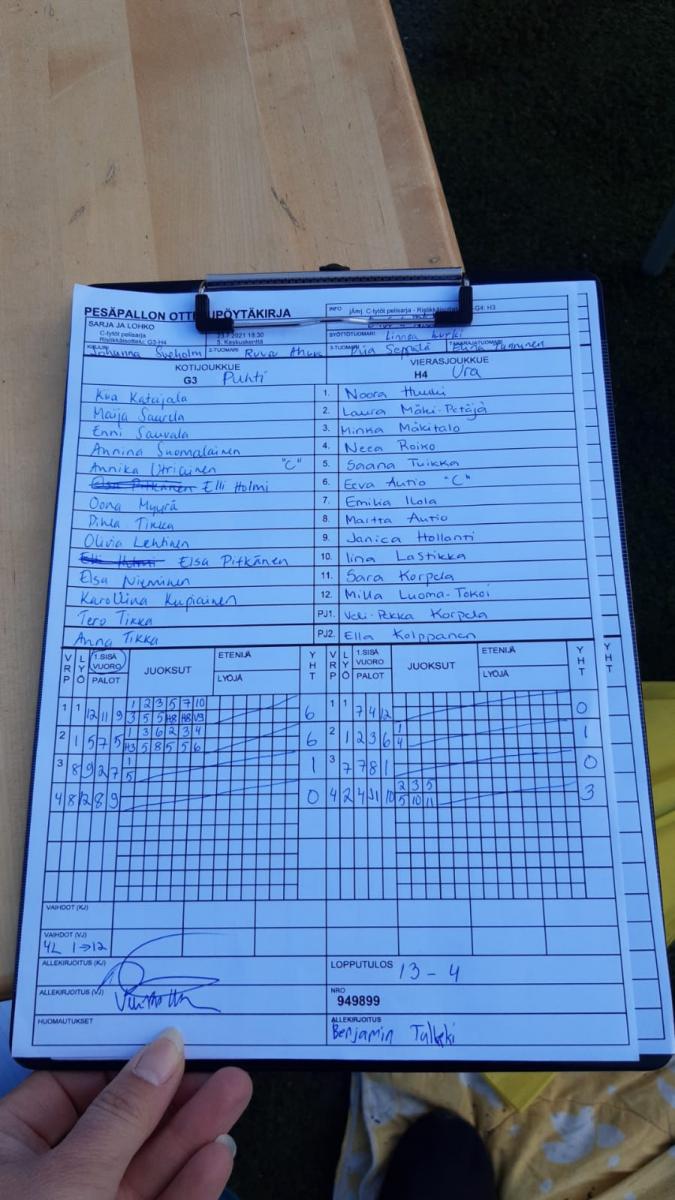 PESÄPALLON OTT PÖYTÄKIRJA
INFO
C-tytöt pelisarja - Ristikkäisottelu
SARJA JA LOHKO
C-tytöt pelisarja
Ristikkäisottelu: G3-H4
2021 18:30
5. Keskuskenttä
SYÖTTÖTUOMARI
Linnea
Johanna
2-TUOMARI
3-TUOMARI
Seppälä
TAKARAJATUOMARI
KOTIJOUKKUE
G3 Puhti
VIERASJOUKKUE
H4 Ura
Katajala 1. Noora
Maija Saarela 2. Laura Mäki-Petäjä
Enni Sauvala 3. Minka Mäkitalo
Annina Suomalainen 4. Neea Roiko
Annika Utriainen "C" 5. Saana Tuikka
Elsa Pitkänen Elli Holmi 6. Eeva Autio "C"
Oona Myyrä 7. Emilia Ilola
Tikka 8. Martta Autio
Olivia Lehtinen 9. Janica Hollanti
Elli Holmi Elsa Pitkänen 10. Iina Lastikka
Elsa Nieminen 11. Sara Korpela
Karoliina Kupiainen 12. Milla Luoma-Tokoi
Tero Tikka PJ1. Veli-Pekka Korpela
Anna Tikka PJ2. Ella Kolppanen
VRP LYÖ 1.SISÄ VUORO PALOT JUOKSUT ETENIJÄ LYÖJÄ YHT VRP LYÖ 1.SISÄ VUORO PALOT JUOKSUT ETENIJÄ LYÖJÄ YHT YHT
1 1 12 11 9 1 2 3 5 7 10 6 1 1 7 4 12 0
3 5 5 H8 H8 V9
2 1 5 7 5 1 3 6 2 3 4 6 2 1 2 3 6 1 1
H3 5 8 5 5 6 4
3 8 9 2 7 1 1 3 7 7 8 1 0
5
4 8 12 8 9 0 4 2 4 11 10 2 3 5 3
5 10 11
VAIHDOT (KJ)
VAIHDOT (VJ)
4L 1→12
ALLEKIRJOITUS (KJ)
LOPPUTULOS 13-4
ALLEKIRJOITUS (VJ)
NRO
949899
HUOMAUTUKSET
ALLEKIRJOITUS
Benjamin